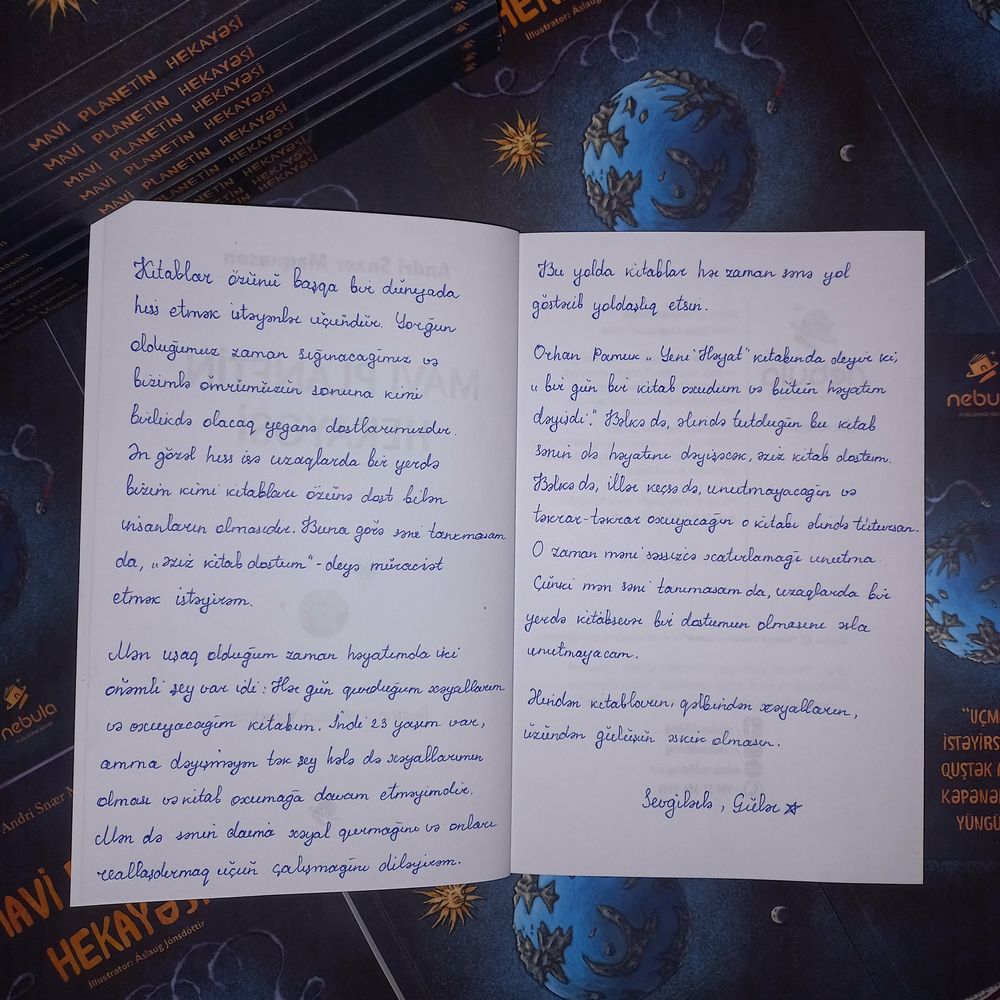 MAVİ PLANETİN HEKAYƏSİ
MAVİ PLANETİN HEKAYƏSİ
MAVİ PLANETİN HEKAYƏSİ
MAVİ PLANETİN HEKAYƏSİ
Illustrator: Áslaug
Kitablar özünü başqa bir dünyada
hiss etmək istəyənlər üçündür. Yorğun
olduğumuz zaman sığınacağımız və
bizimlə ömrümüzün sonuna kimi
birlikdə olacaq yeganə dostlarımızdır.
Ən gözəl hiss isə uzaqlarda bir yerdə
bizim kimi kitabları özünə dost bilən
insanların olmasıdır. Buna görə səni tanımasam
da, "əziz kitab dostum" - deyə müraciət
etmək istəyirəm.
Mən uşaq olduğum zaman həyatımda iki
önəmli şey var idi: Hər gün qurduğum xəyallarım
və oxuyacağım kitabım. İndi 23 yaşım var,
amma dəyişməyən tək şey hələ də xəyallarımın
olması və kitab oxumağa davam etməyimdir.
Mən də sənin daima xəyal qurmağını və onları
reallaşdırmaq üçün çalışmağını diləyirəm.
Bu yolda kitablar hər zaman sənə yol
göstərib yoldaşlıq etsin.
Orhan Pamuk "Yeni Həyat" kitabında deyir ki,
"bir gün bir kitab oxudum və bütün həyatım
dəyişdi." Bəlkə də, əlində tutduğun bu kitab
sənin də həyatını dəyişəcək, əziz kitab dostum.
Bəlkə də, illər keçsə də, unutmayacağın və
təkrar-təkrar oxuyacağın o kitabı əlində tutursan.
O zaman məni səssizcə xatırlamağı unutma.
Çünki mən səni tanımasam da, uzaqlarda bir
yerdə kitabsevər bir dostumun olmasını əsla
unutmayacam.
Əlindən kitabların, qəlbindən xəyalların,
üzündən gülüşün əskik olmasın.
Sevgilərlə, Gülər
nebula
PUBLISHING HOUSE
nebula
Andri Snær M
MAVİ
HEKAYƏSİ
Illustrator: Áslaug Jónsdóttir
"UÇM
İSTƏYİRS
QUŞTƏK
KƏPƏNƏ
YÜNGÜ